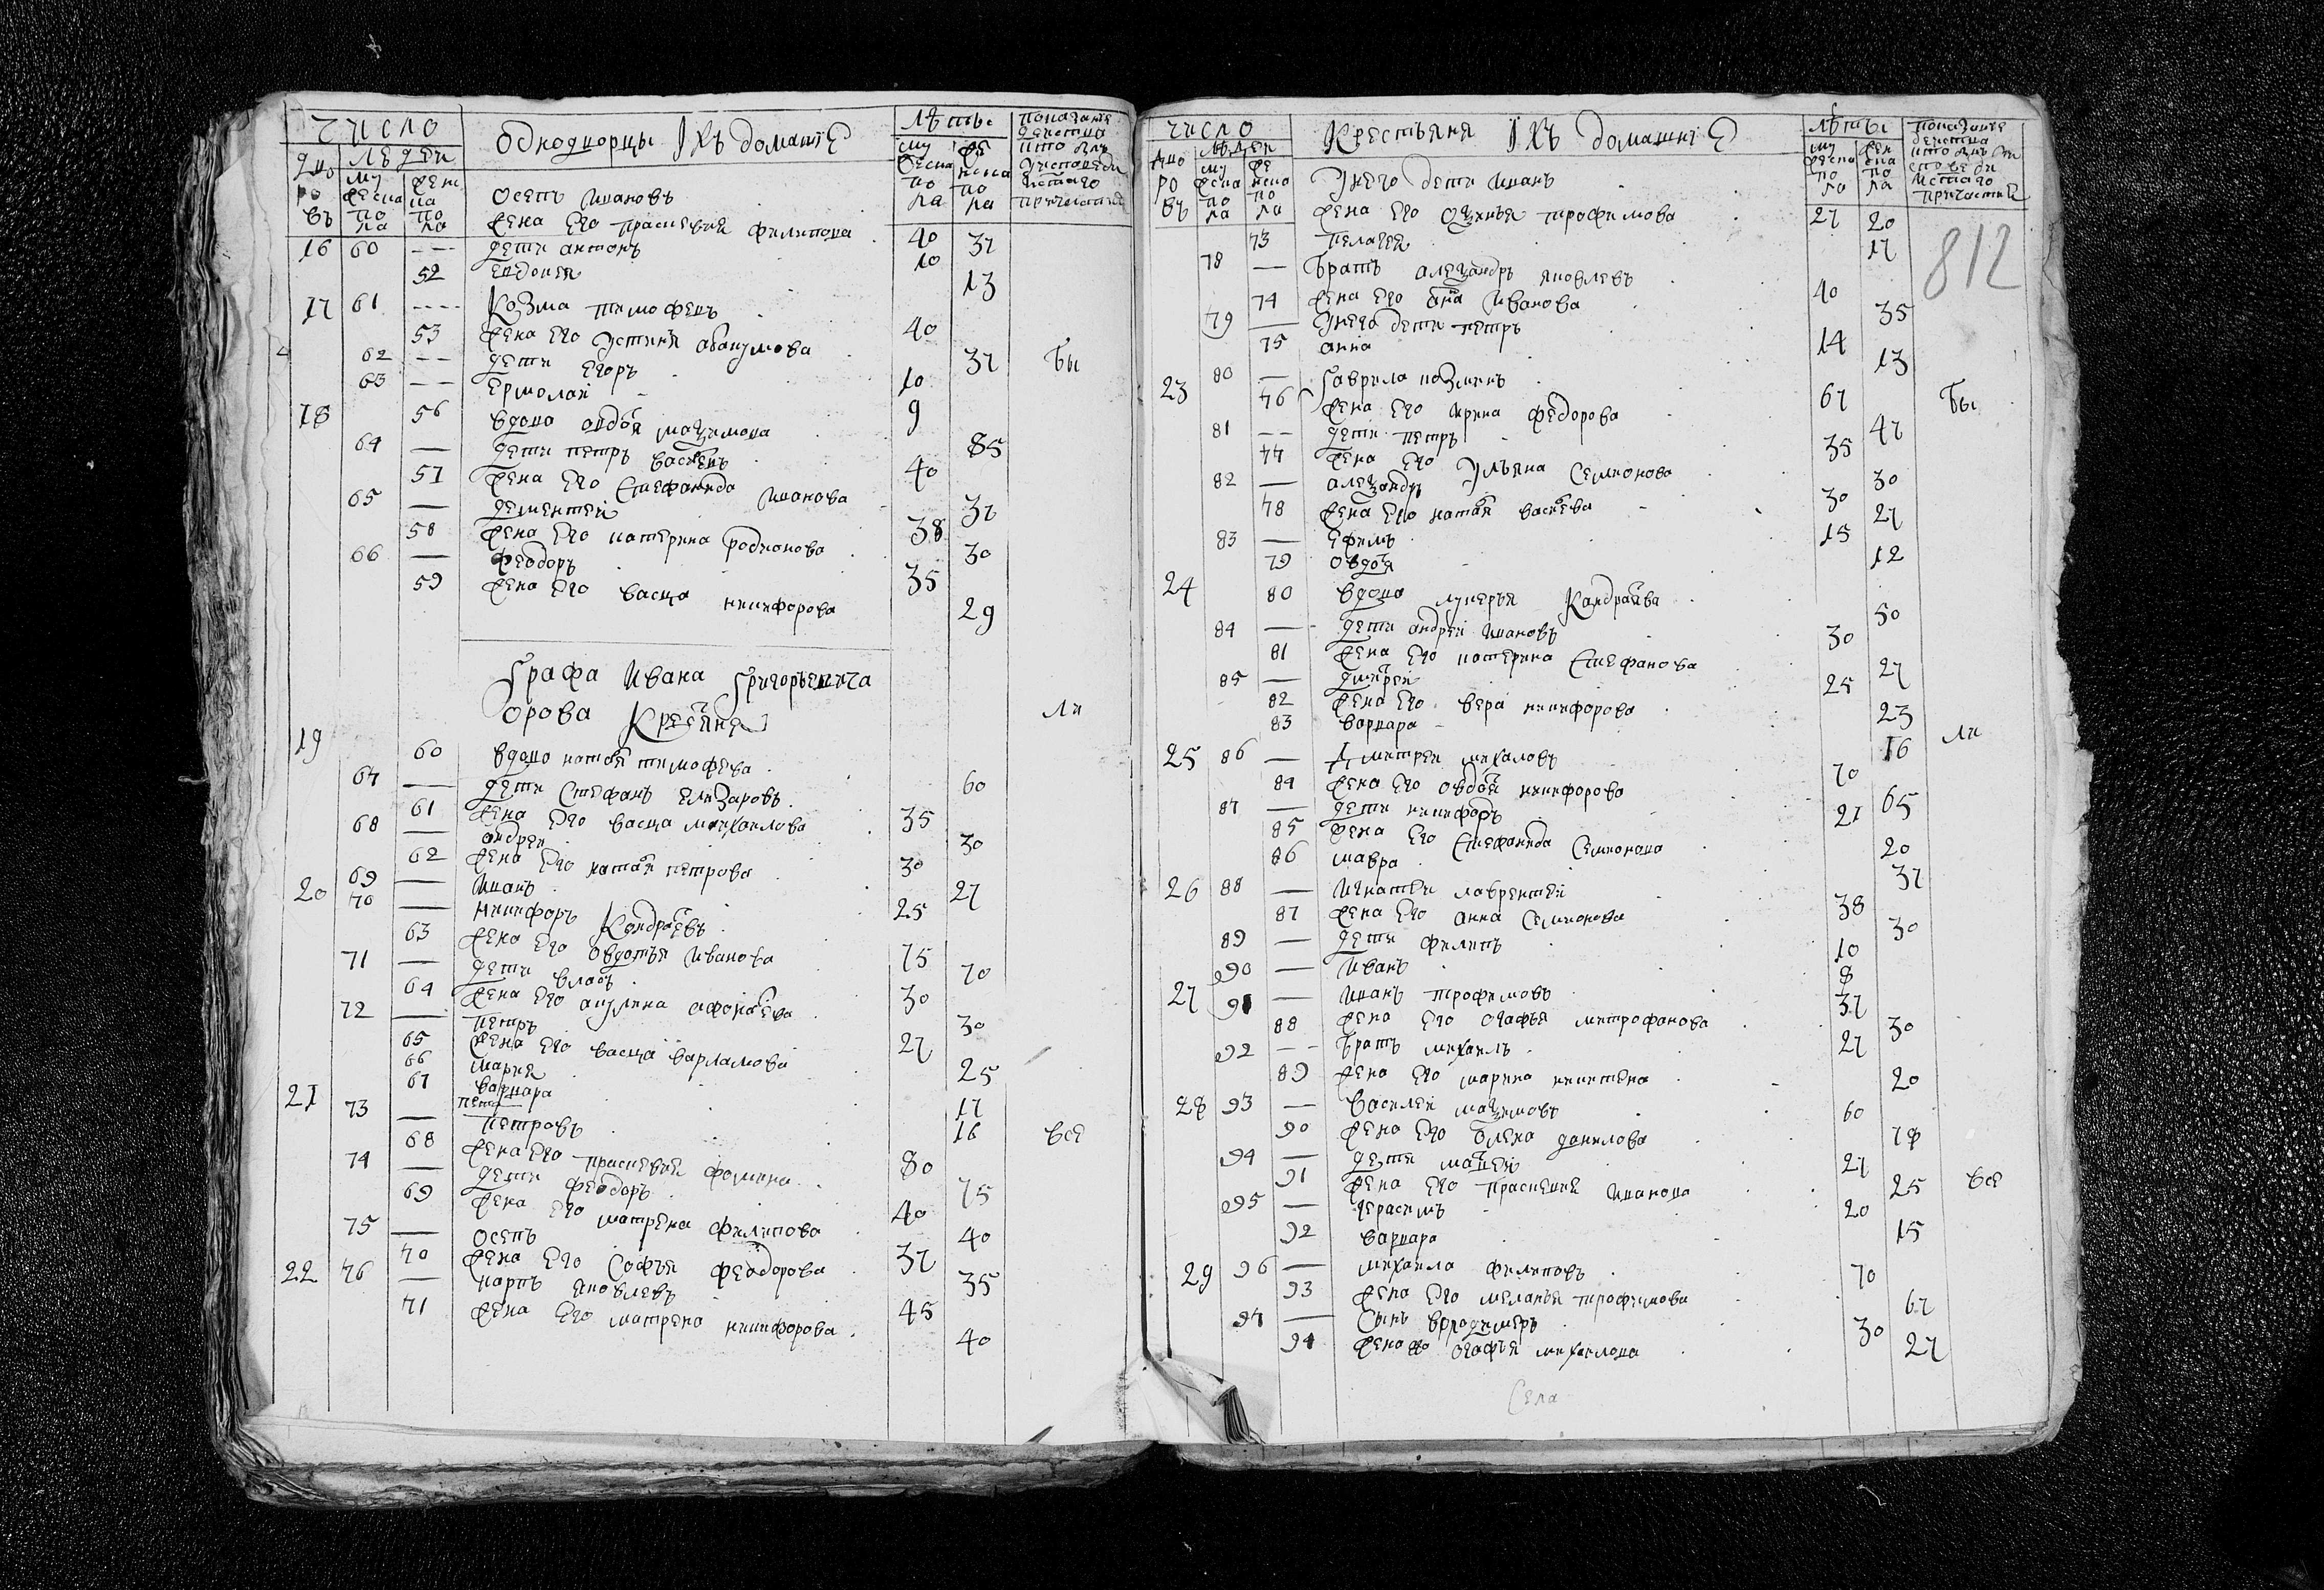 число
людеи
дво ро въ
му жеска по ла
жен ска по ла
однодворцы Ихъ домашніе
лѣты
му жеска по ла
же нска по ла
показаніе
осепъ ивановъ
жена Его прасковия филипова
16 60 -- 40 37
дети антонъ 10
52 Евдокея 13
17 61 ---- Козма тимофеевъ 40
53 жена Его устиня абакумова 37 бы
62 -- дети Егоръ 10
63 -- Ермолаи 9
18 56 вдова авдотя мазимова 85
64 — дети петръ васиевъ 40
57 жена Его Стефанида иванова 37
65 — дементеи 38
58 жена Его катерина родионова 30
66 — феодоръ 35
59 жена Его васща никифорова 29
Графа Ивана Григорьевича
орова Крестяне ли
19 60 вдова наталя тимофеева 60
67 — дети Стефанъ Елизаровъ 35
61 жена Его васща михаилова 30
68 — андреи 30
62 жена Его наталя петрова 27
69 — иванъ 25
20 70 — никифоръ Кондратевъ 75
63 жена Его овдотья иванова 70
71 — дети власъ 30
64 жена Его акулина афонасева 30
72 — петръ 27
65 жена Его васща варламова 25
66 мария 17
67 варвара 16
21 73 — петровъ 80 все
68 жена Его прасковия фомина 75
74 — дети феодоръ 40
69 жена Его матрена филипова 40
75 — осепъ 37
70 жена Его Софья феодорова 35
22 76 — карпъ яковлевъ 45
71 жена Его матрена никифорова 40
число
людеи
дво ро въ
му жеска по ла
же нска по ла
Крестьяня Ихъ домашніе
лѣты
му жеска по ла
жен ска по ла
показание
812
у него дети иванъ 27
жена Его трофимова 20
73 пелагея 17
78 — братъ алезандръ яковлевъ 40
74 жена Его ана иванова 35
79 — у него дети петръ 14
75 анна 13
23 80 — Гаврила козминъ 67 бы
76 жена Его ирина федорова 47
81 -- дети петръ 35
77 жена Его ульяна Семионова 30
82 — алезандръ 30
78 жена Его наталя васиева 27
83 — Ефимъ 15
79 овдотя 12
24 80 вдова лукерья Кондратва 50
84 — дети андреи ивановъ 30
81 жена Его катерина Стефанова 27
85 — дмитреи 25
82 жена Его вера никифорова 23
83 варвара 16
25 86 — Дмитреи михаловъ 70 ли
84 жена Его овдотя никифорова 65
87 — дети никифоръ 21
85 жена Его Стефанида Семионова 20
86 мавра 37
26 88 — игнатеи лаврентеи 38
87 жена Его анна Семионова 30
89 — дети филипъ 10
90 — иванъ 8
27 91 — иванъ трофимовъ 37
88 жена Его огафья митрофанова 30
92 -- братъ михаилъ 27
89 жена Его марина никитена 20
28 93 — василеи мазимовъ 60
90 жена Его данилова 78
94 — дети матвеи 27
91 жена Его прасковия иванова 25 все
95 — герасимъ 20
92 варвара 15
29 96 — михаила филиповъ 70
93 жена Его меланья трофимова 67
97 — Сынъ володимеръ 30
94 жена его огафья михаилова 27
Села